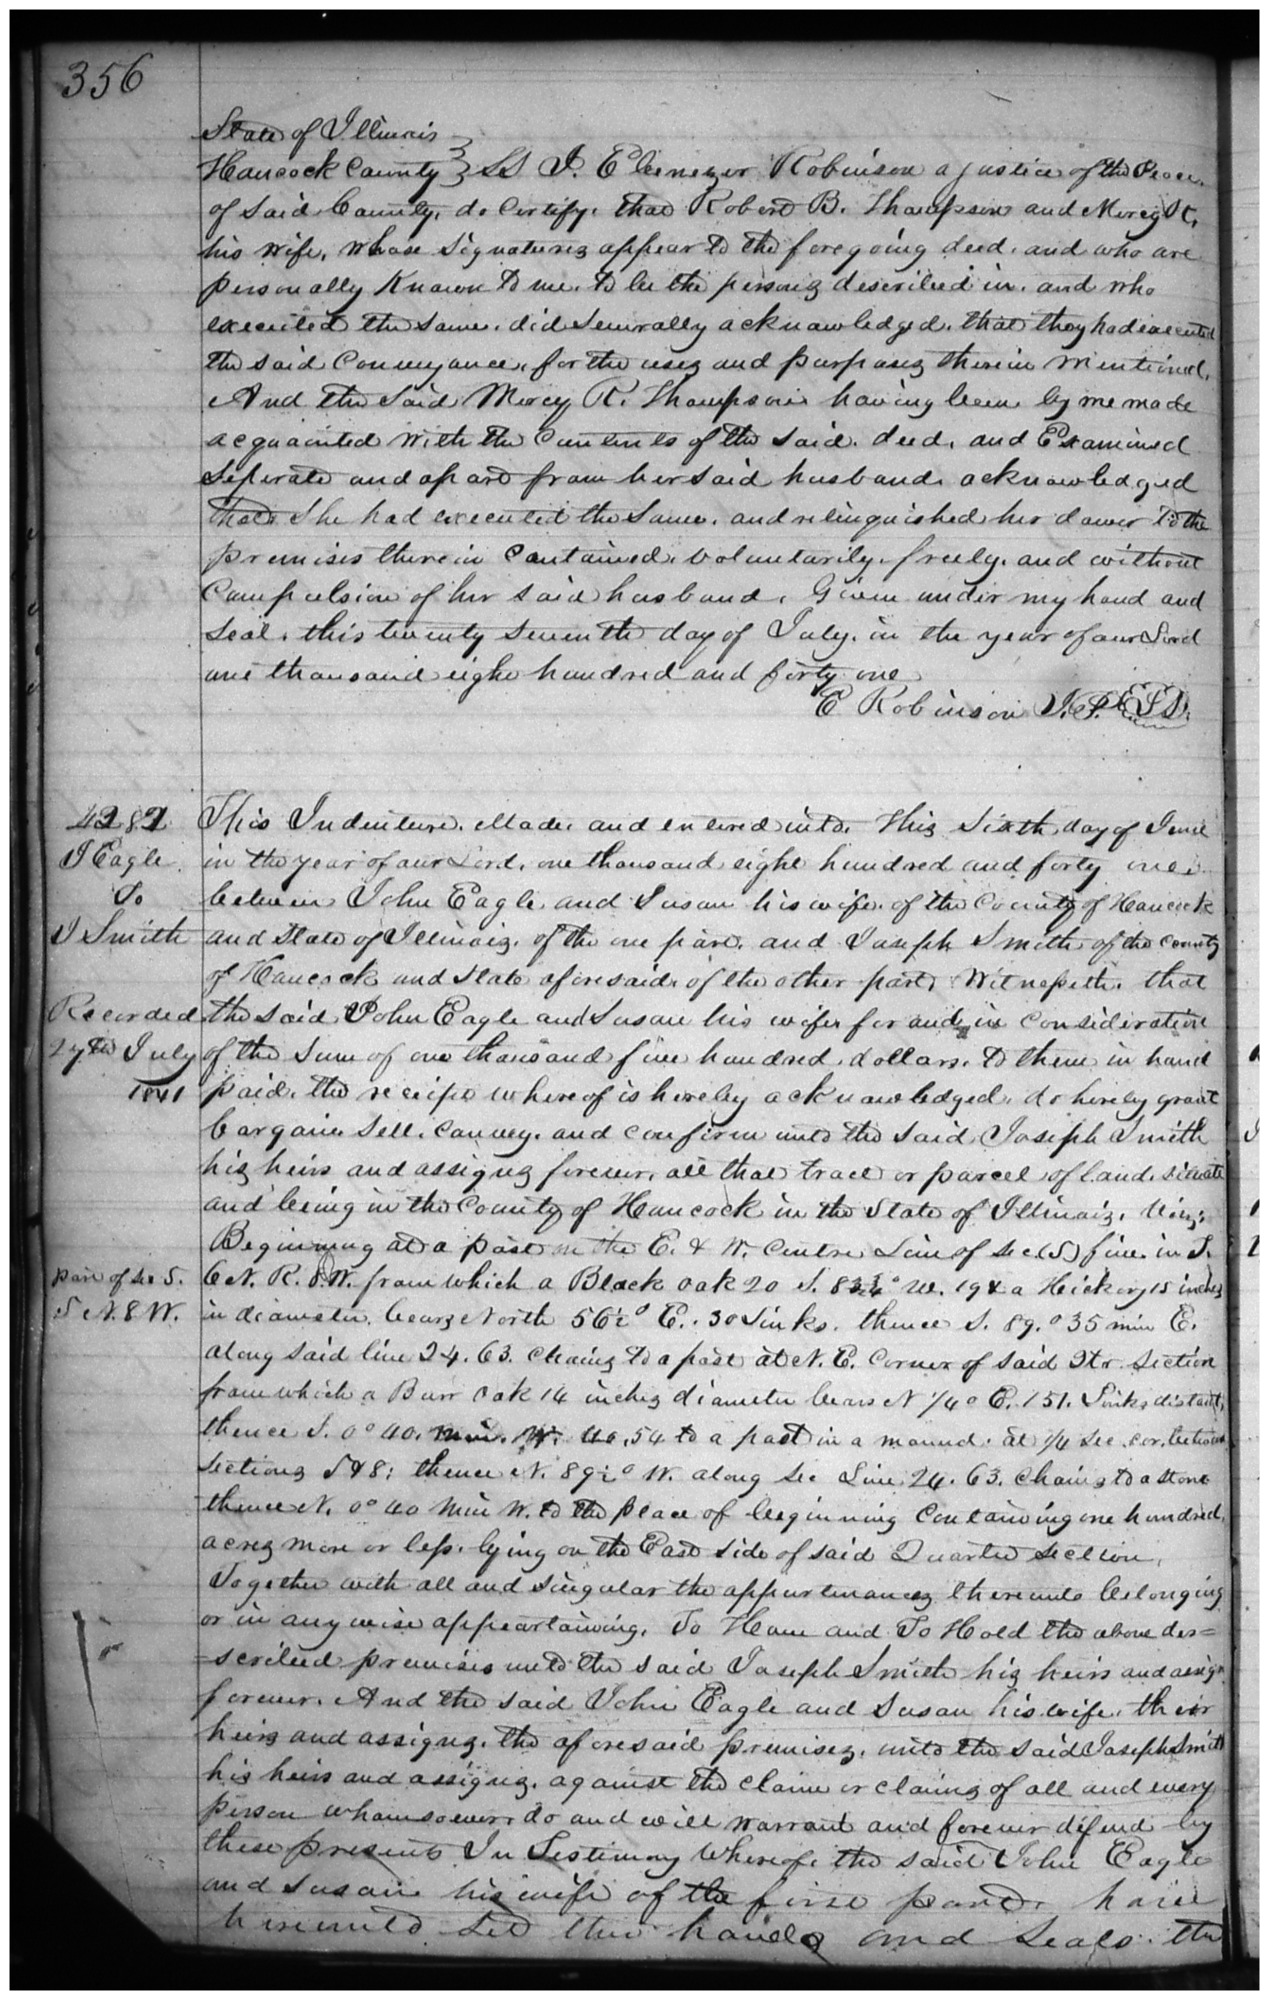 356
State of Illinois
Hancock County } SS I. Ebenezer Robinson a justice of the Peace.
of said County, do Certify, that Robert B. Thompson and Mercy R.
his wife, whose signatures appear to the foregoing deed, and who are
personally known to me, to be the persons described in, and who
executed the same, did severally acknowledged, that they had executed
the said Conveyance, for the uses and purposes therein mentioned,
And the said Mercy R. Thompson having been by me made
acquainted with the Contents of the said deed, and Examined
seperate and apart from her said husband, acknowledged
that She had executed the same, and relinquished her dower to the
premises therein Contained, voluntarily, freely, and without
Compulsion of her said husband. Given under my hand and
seal, this twenty seventh day of July, in the year of our Lord
one thousand eight hundred and forty one
E Robinson J.P. LS
J Eagle
To
J Smith
Recorded
27th July
1841
This Indenture, Made, and entered into, this Sixth day of June
in the year of our Lord, one thousand eight hundred and forty one,
between John Eagle and Susan his wife, of the County of Hancock
and State of Illinois, of the one part, and Joseph Smith of the County
of Hancock and State aforesaid, of the other part, Witnesseth, that
the said John Eagle and Susan his wife, for and in Consideration
of the sum of one thousand five hundred dollars, to them in hand
paid, the receipt whereof is hereby acknowledged, do hereby grant
bargain, sell, convey, and confirm unto the said Joseph Smith
his heirs and assigns forever, all that tract or parcel of land, situate
and being in the County of Hancock in the State of Illinois, Viz;
Beginning at a post in the E. & W. Centre Line of Sec (5) five in T.
6 N. R. 8 W. from which a Black oak 20 S. W. 19 & a Hickory 15 inches
part of Sec 5.
5 N. 8 W.
in diameter, bears North 56½° E. 30 Links, thence S. 89.° 35 min E.
along said line 24.63. Chains to a post at N.E. Corner of said Qtr. Section
from which a Burr oak 14 inches diameter bears N ¼° E. 151. Links distant,
thence S. 0° 40. min. W. 40,54 to a post in a mound, at ¼ Sec. cor. between
Sections 5 & 8; thence N. 89½° W. along Sec Line, 24.63. Chains to a stone
thence N. 0° 40 min W. to the place of beginning Containing one hundred,
acres more or less, lying on the East side of said Quarter section,
Together with all and singular the appurtenances thereunto belonging
or in any wise appeartaining, To Have and To Hold the above des=
=scribed premises unto the said Joseph Smith his heirs and assigns
forever. And the said John Eagle and Susan his wife, their
heirs and assigns, the aforesaid premises, unto the said Joseph Smith
his heirs and assigns, against the claim or claims of all and every
person whomsoever, do and will warrant and forever defend by
these presents In Testimony Whereof, the said John Eagle
and Susan his wife of the first part, have
hereunto set their hands and seals the